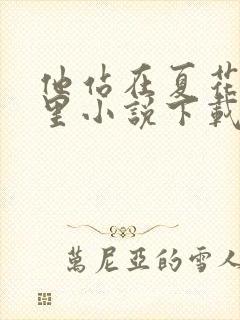 他佔在夏花
里小說下載
萬尼亞的雪人